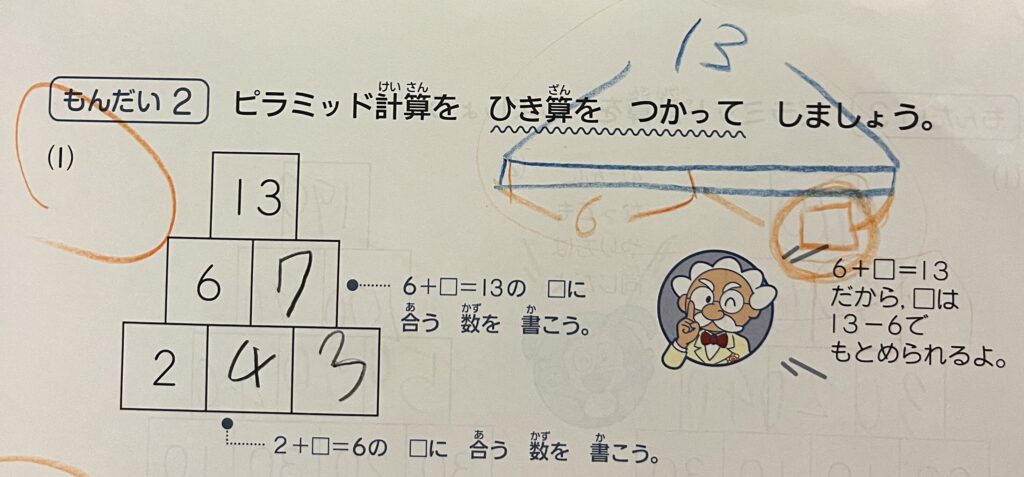 13
もんだい 2 ピラミッド計算を ひき算を つかって しましょう。
けい さん
ざん
(1)
13
6 7
2 4 3
6
□
6+□=13の □に
合う 数を 書こう。
あ かず か
2+□=6の □に 合う 数を 書こう。
あ かず か
6+□=13
だから,□は
13-6で
もとめられるよ。